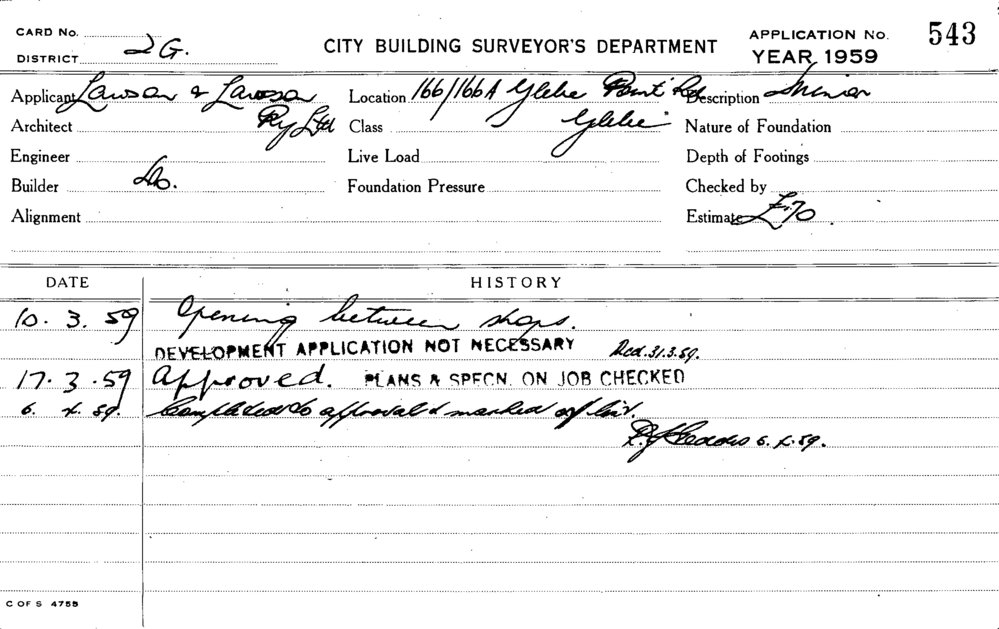 CARD No.
DISTRICT 2G.
CITY BUILDING SURVEYOR'S DEPARTMENT
APPLICATION No. 543
YEAR 1959
Applicant Lawson & Larossa
Pty Ltd
Location 166/166A Glebe Point Rd
Glebe
Description Minor
Architect
Class
Nature of Foundation
Engineer
Live Load
Depth of Footings
Builder Do.
Foundation Pressure
Checked by
Alignment
Estimate £70
DATE HISTORY
10. 3. 59 Opening between shops.
DEVELOPMENT APPLICATION NOT NECESSARY 31.3.59.
17. 3. 59 Approved. PLANS & SPECN. ON JOB CHECKED
6. 4. 59. Completed to approval & marked off list.
6. 4. 59.
C OF S 4755